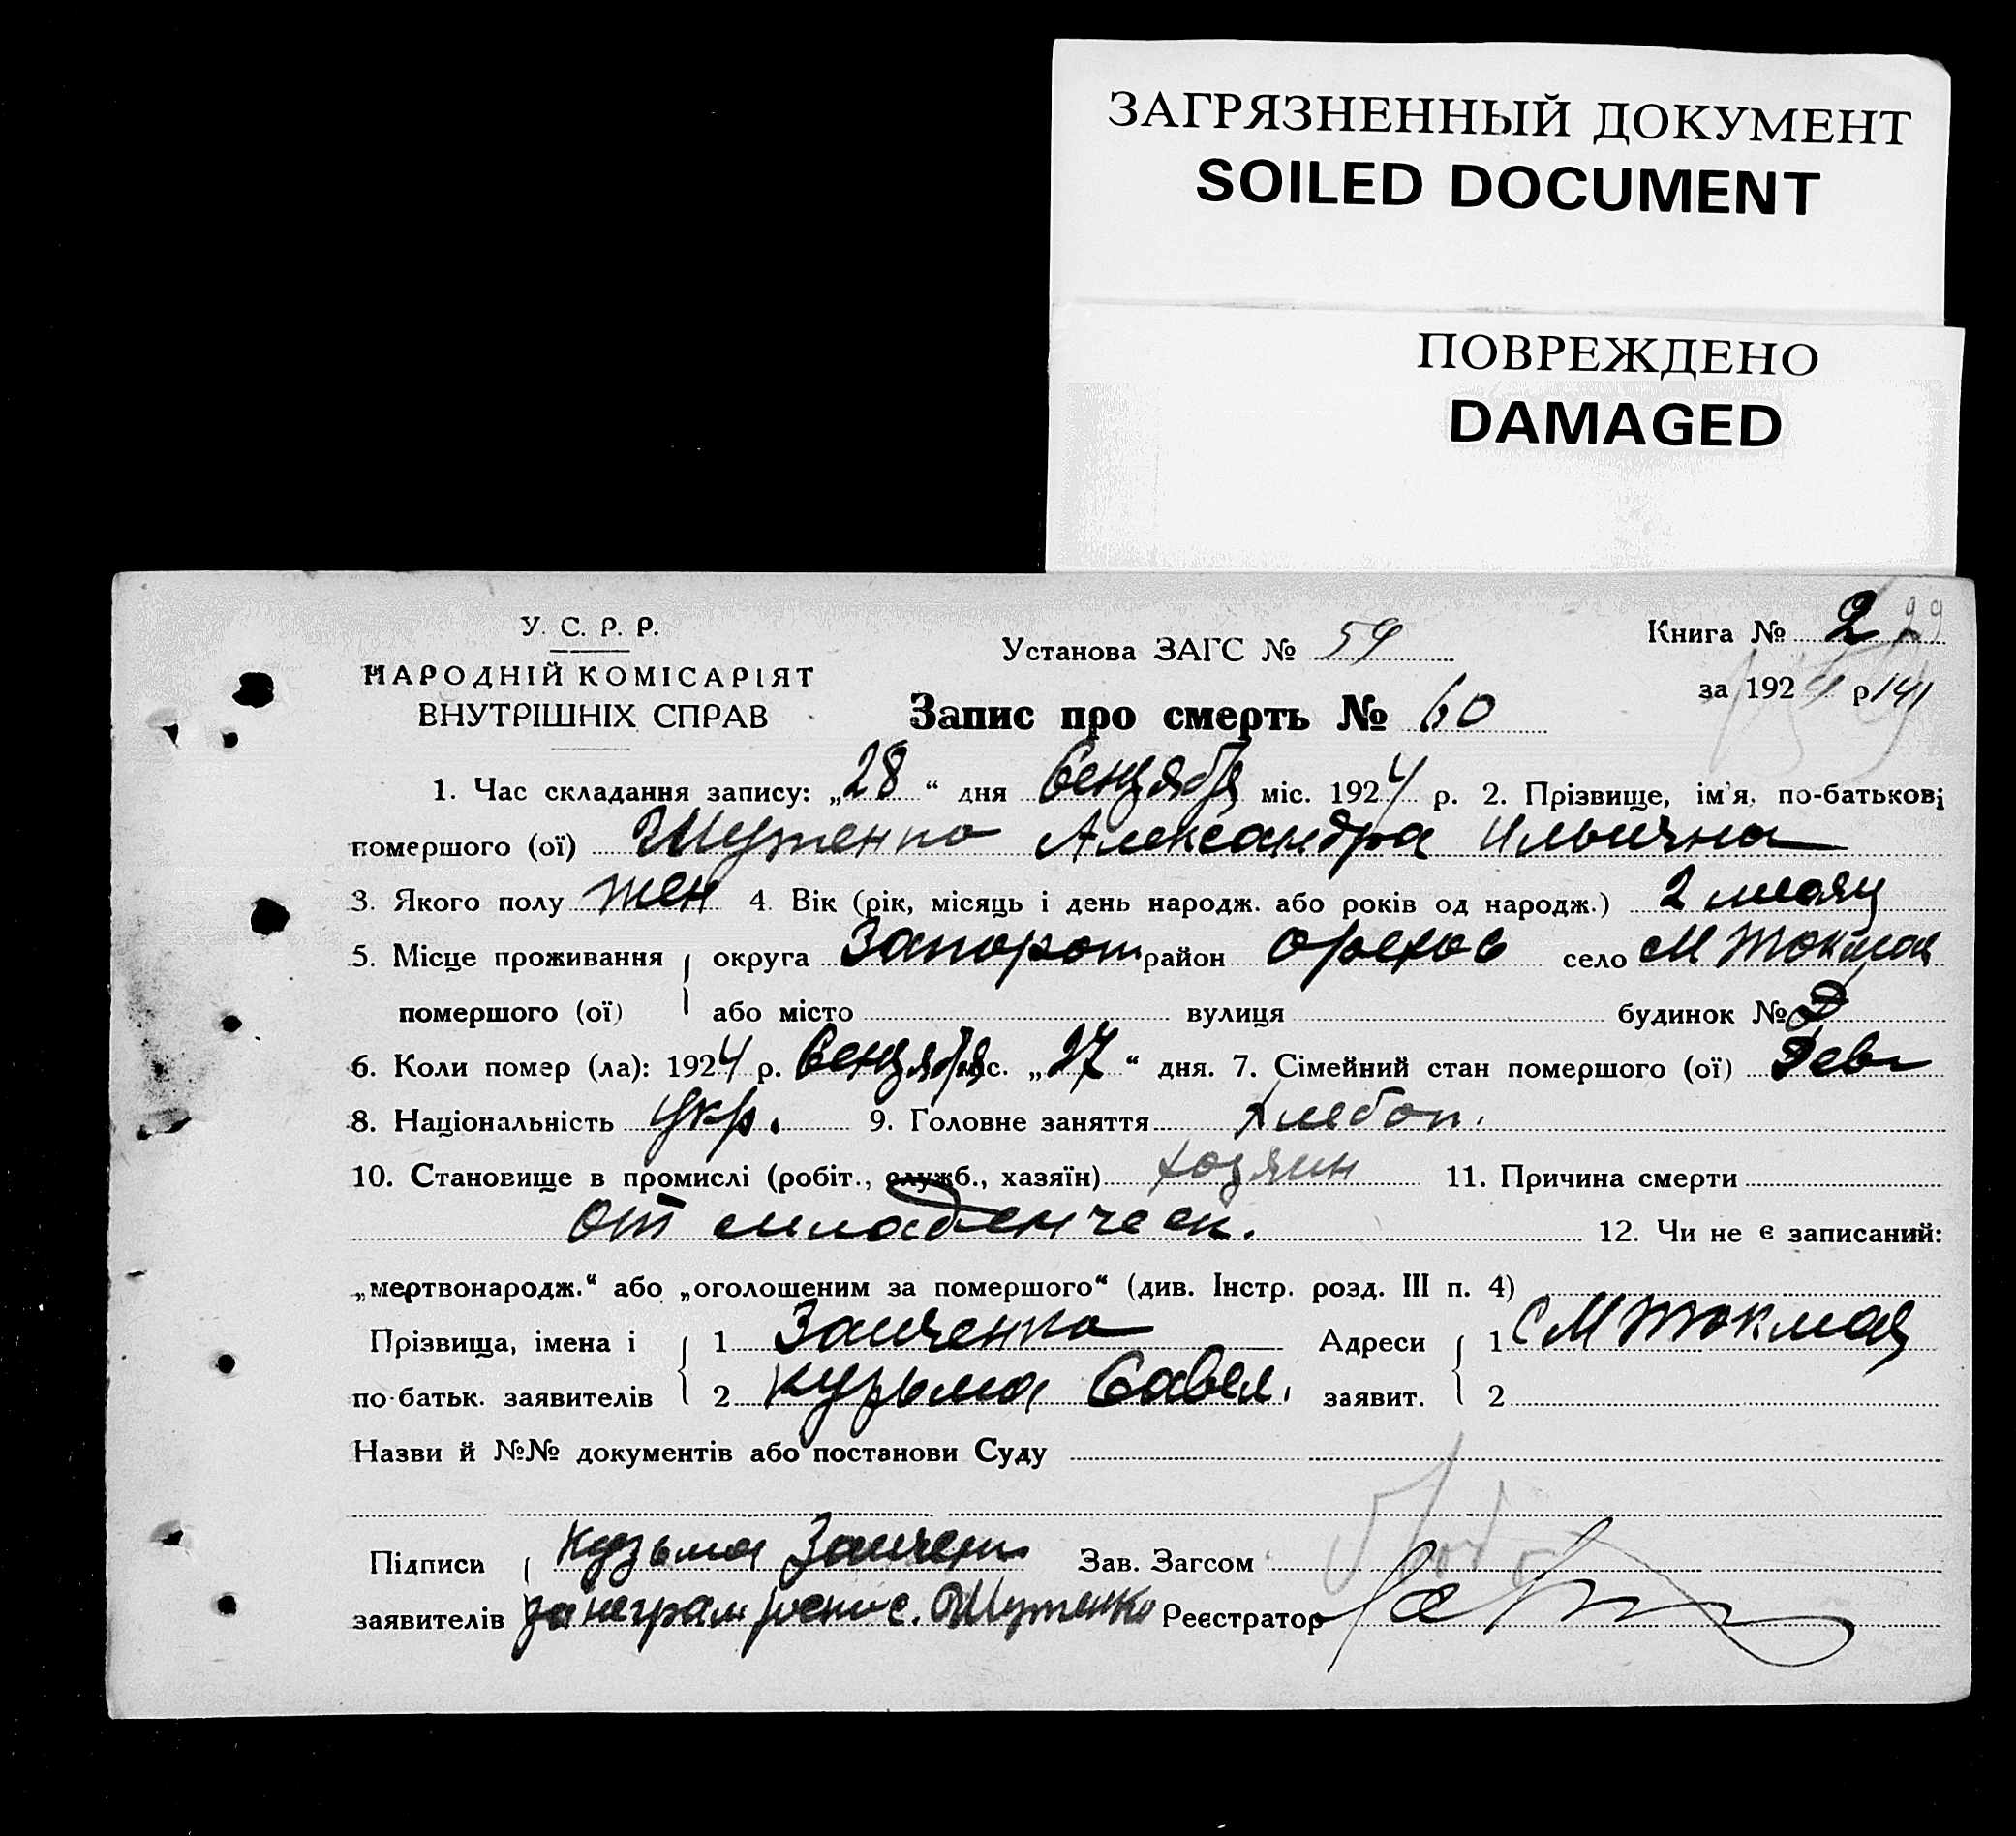 ЗАГРЯЗНЕННЫЙ ДОКУМЕНТ
SOILED DOCUMENT
ПОВРЕЖДЕНО
DAMAGED
У. С. Р. Р.
НАРОДНІЙ КОМІСАРІЯТ
ВНУТРІШНІХ СПРАВ
Установа ЗАГС № 59
Книга № 2 29
за 1924 р 141
Запис про смерть № 60
1. Час складання запису: „28“ дня Сентября міс. 1924 р. 2. Прізвище, ім'я, по-батькові
помершого (ої) Шутенко Александра Ильична
3. Якого полу жен 4. Вік (рік, місяць і день народж. або років од народж.) 2 месяц
5. Місце проживання округа Запорож район Орехов село М Токмач
помершого (ої) або місто вулиця будинок №
6. Коли помер (ла): 1924 р. Сентября міс. „27“ дня. 7. Сімейний стан помершого (ої) Дев
8. Національність укр. 9. Головне заняття хлебоп.
10. Становище в промислі (робіт., служб., хазяїн) хозяин 11. Причина смерти
от младенческ. 12. Чи не є записаний:
„мертвонародж.“ або „оголошеним за помершого“ (див. Інстр. розд. III п. 4)
Прізвища, імена і 1 Заиченко Адреси 1 С М Токмач
по-батьк. заявителів 2 Кузьма Савел. заявит. 2
Назви й №№ документів або постанови Суду
Підписи Кузьма Заичен Зав. Загсом
заявителів за неграм роспис. Шутенко Реєстратор